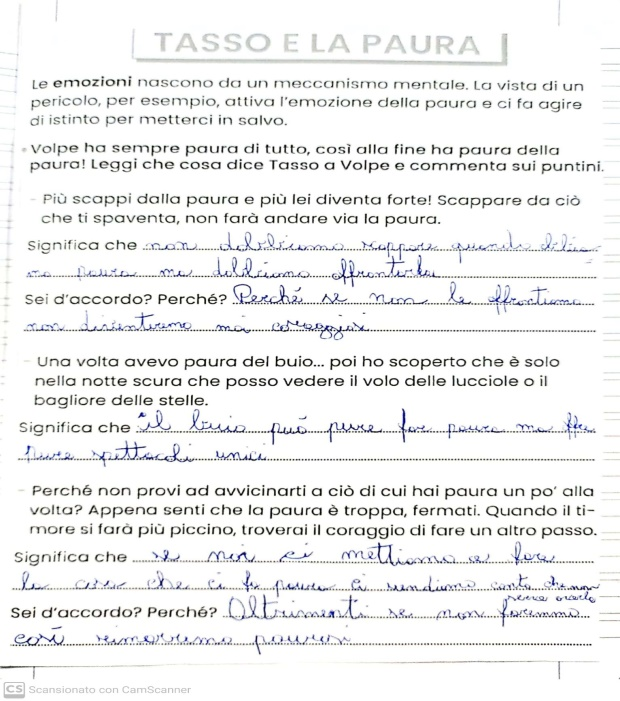 TASSO E LA PAURA
Le emozioni nascono da un meccanismo mentale. La vista di un
pericolo, per esempio, attiva l'emozione della paura e ci fa agire
di istinto per metterci in salvo.
Volpe ha sempre paura di tutto, così alla fine ha paura della
paura! Leggi che cosa dice Tasso a Volpe e commenta sui puntini.
- Più scappi dalla paura e più lei diventa forte! Scappare da ciò
che ti spaventa, non farà andare via la paura.
Significa che non dobbiamo scappare quando abbia-
mo paura ma dobbiamo affrontarla
Sei d'accordo? Perché? Perché se non la affrontiamo
non diventeremo mai coraggiosi
- Una volta avevo paura del buio... poi ho scoperto che è solo
nella notte scura che posso vedere il volo delle lucciole o il
bagliore delle stelle.
Significa che il buio può pure far paura ma
pure spettacoli unici
- Perché non provi ad avvicinarti a ciò di cui hai paura un po' alla
volta? Appena senti che la paura è troppa, fermati. Quando il ti-
more si farà più piccino, troverai il coraggio di fare un altro passo.
Significa che se noi ci mettiamo a fare
le cose che ci fa paura ci rendiamo conto che non
Sei d'accordo? Perché? Altrimenti se non faremmo
così rimarremo paurosi
CS Scansionato con CamScanner